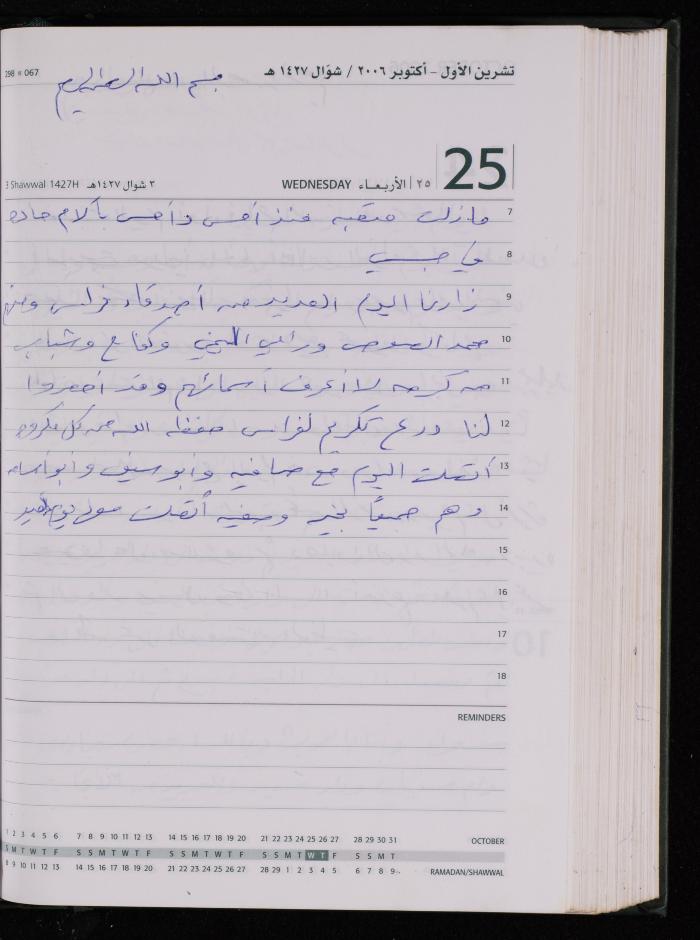 298 • 067
تشرين الأول - أكتوبر ٢٠٠٦ / شوّال ١٤٢٧ هـ
بسم الله الرحمن الرحيم
25
3 Shawwal 1427H ٣ شوال ١٤٢٧هـ WEDNESDAY ٢٥ الأربعاء
7 مازلت متعبه منذ أمس وأحس بآلام حاده
8 في جسمي
9 زارنا اليوم العديد من أصدقاء فراس ومنهم
10 محمد ورامي وكفاح وشباب
11 من لا أعرف أسمائهم وقد أحضروا
12 لنا درع تكريم لفراس حفظه الله من كل مكروه
13 اتصلت اليوم مع صافيه وأبو سيف وأبو أسامه
14 وهم جميعاً بخير وصفيه اتصلت
15
16
17
18
REMINDERS
1 2 3 4 5 6 7 8 9 10 11 12 13 14 15 16 17 18 19 20 21 22 23 24 25 26 27 28 29 30 31 OCTOBER
S M T W T F S S M T W T F S S M T W T F S S M T W T F S S M T
8 9 10 11 12 13 14 15 16 17 18 19 20 21 22 23 24 25 26 27 28 29 1 2 3 4 5 6 7 8 9 RAMADAN/SHAWWAL